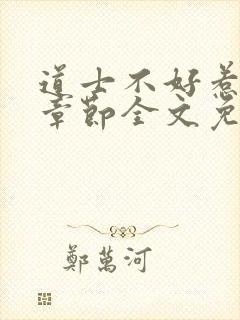 道士不好惹
章節全文免
鄭萬河